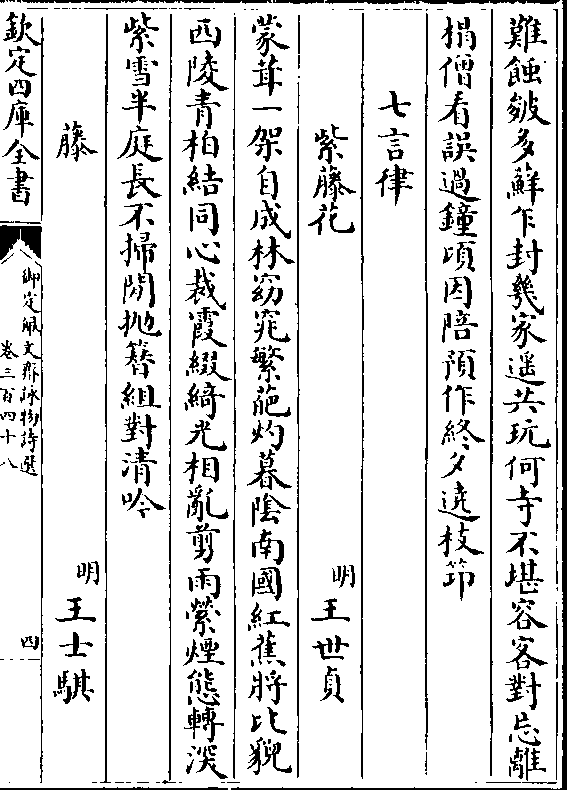 難蝕皴多蘚乍封幾家遥共玩何寺不堪容客對忘離
榻僧看誤過鐘頃因陪預作終夕遶枝筇
七言律
紫藤花
明王世貞
蒙茸一架自成林窈窕繁葩灼暮陰南國紅蕉將比貌
西陵青柏結同心裁霞綴綺光相亂剪雨縈煙態轉深
紫雪半庭長不掃閒抛簪組對清吟
藤
明王士騏
欽定四庫全書
御定佩文齋詠物詩選
卷三百四十八
四